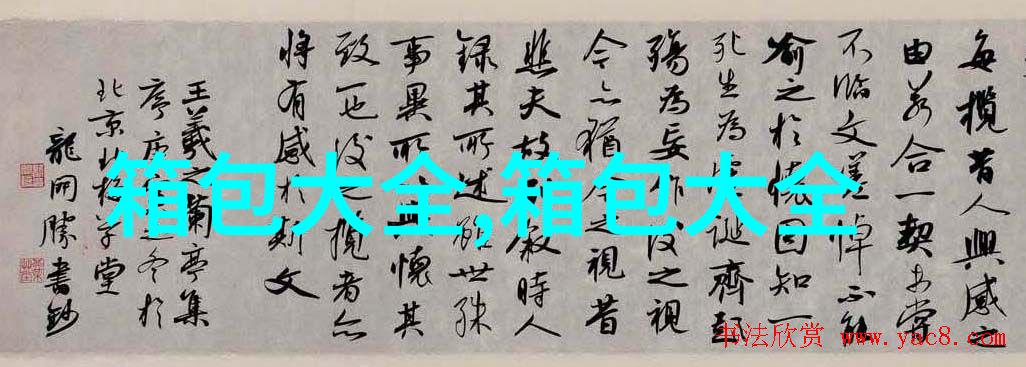 每攬昔人興感之
由若合一契未嘗
不臨文嗟悼不能
喻之於懷固知一
死生為虛誕齊彭
殤為妄作後之視
今亦猶今之視昔
悲夫故列敘時人
錄其所述雖世殊
事異所以興懷其
致一也後之攬者亦
將有感於斯文
王羲之蘭亭集
序 之冬於
北京 堂
龍開勝書鈔
箱包大全,箱包大全
书法欣赏 www.yac8.com